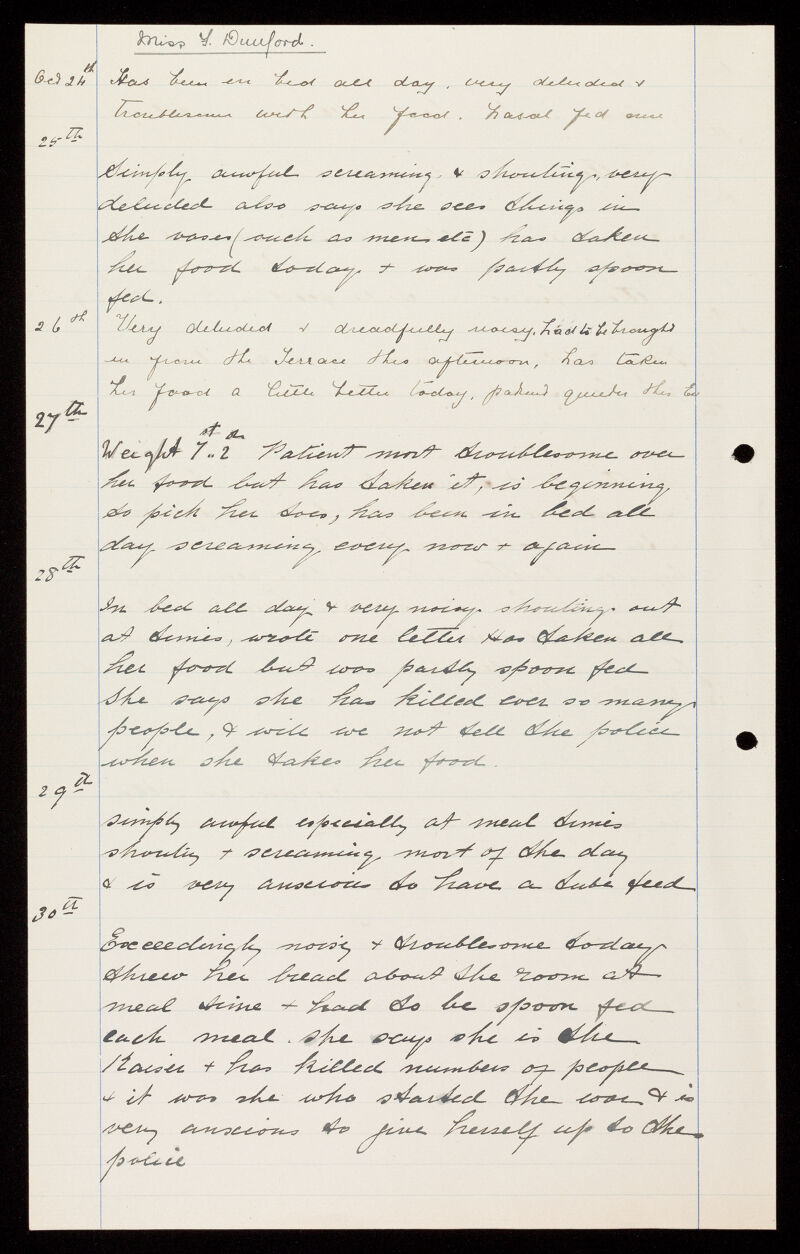 Miss Y. Dunford.
Oct 24th Has been in bed all day. very deluded &
troublesome with her food. Nasal fed one
25th
Simply awful screaming & shouting, very
deluded also says she sees things in
the vases (such as men etc) has taken
her food today & was partly spoon
fed.
26th Very deluded & dreadfully noisy. had to be brought
in from the Terrace this afternoon, has taken
her food a little better today. patient quieter this Ev
27th
Weight 7st..2 Patient most troublesome over
her food but has taken it, is beginning
to pick her toes, has been in bed all
day screaming every now & again
28th
In bed all day & very noisy shouting out
at times, wrote one letter Has taken all
her food but was partly spoon fed
She says she has killed ever so many
people, & will we not tell the police
when she takes her food.
29th
simply awful especially at meal times
shouting & screaming most of the day
& is very anxious to have a tube feed
30th
Exceedingly noisy & troublesome today
threw her bread about the room at
meal time & had to be spoon fed
each meal. she says she is the
Kaiser & has killed numbers of people
& it was she who started the war & is
very anxious to give herself up to the
police